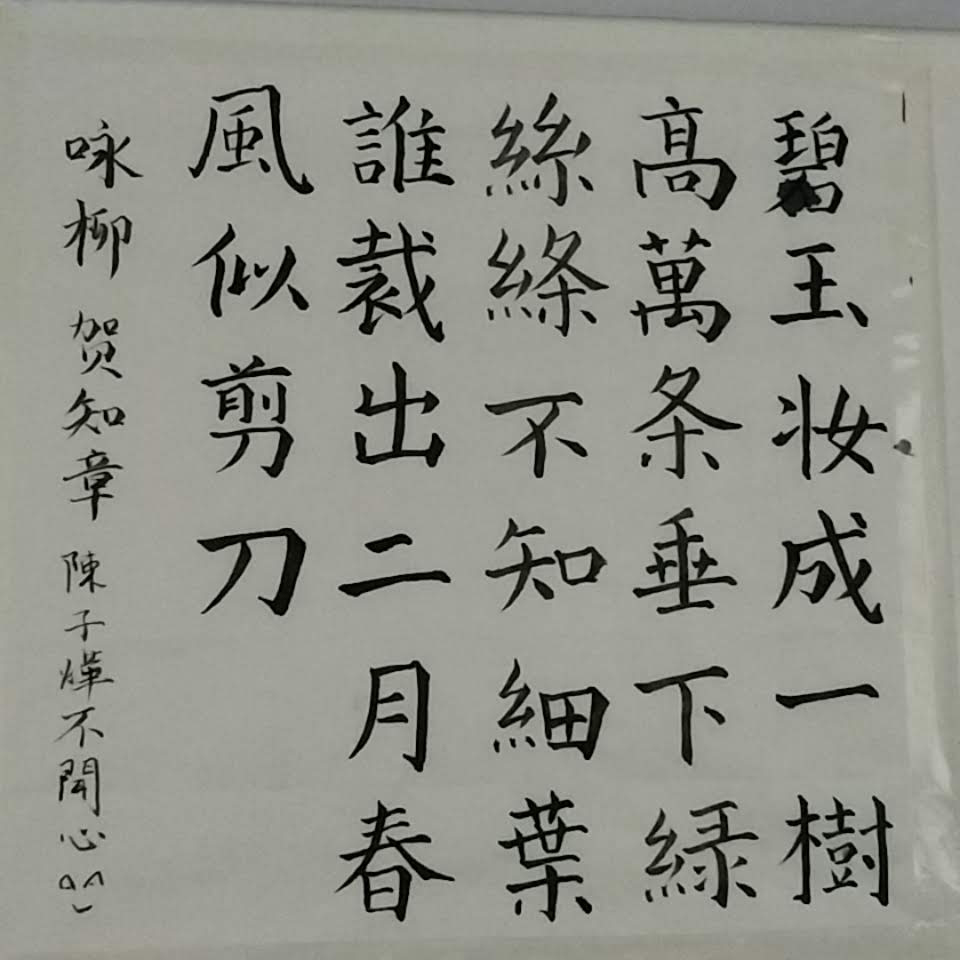 碧玉妆成一樹
高萬条垂下緑
絲絛不知細葉
誰裁出二月春
風似剪刀
咏柳 贺知章 陳子燁不開心